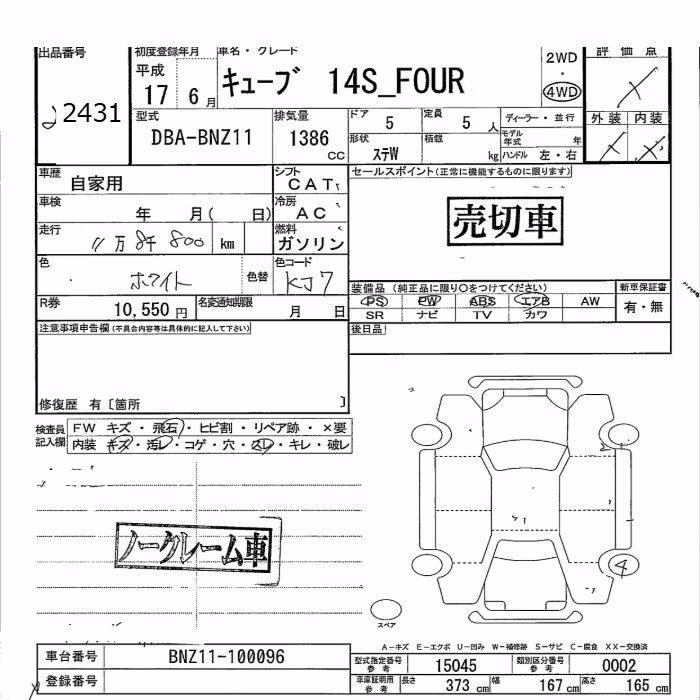 出品番号 初度登録年月 車名・グレード 評価点
2431 平成 17 6月 キューブ 14S_FOUR 2WD・4WD
型式 排気量 ドア 定員 ディーラー・並行 外装 内装
DBA-BNZ11 1386 CC 5 5人 モデル年式 年
形状 積載
ステW kg ハンドル 左・右
車歴 自家用 シフト CAT セールスポイント(正常に機能するものに限ります)
車検 年 月( 日) 冷房 AC 売切車
走行 11万8千800km 燃料 ガソリン
色 ホワイト 色替 色コード KJ7
装備品(純正品に限り○をつけてください) 新車保証書
PS PW ABS エアB AW 有・無
R券 10,550円 名変通知期限 月 日 SR ナビ TV カワ
注意事項申告欄(不具合内容等は具体的に記入して下さい) 後日品
修復歴 有〔箇所 〕
検査員 FW キズ・飛石・ヒビ割・リペア跡・×要
記入欄 内装 キズ・汚レ・コゲ・穴・スレ・キレ・破レ
ノークレーム車
4
スペア
A-キズ E-エクボ U-凹み W-補修跡 S-サビ C-腐食 XX-交換済
車台番号 BNZ11-100096 型式指定番号 参考 15045 類別区分番号 参考 0002
登録番号 車庫証明用 参考 長さ 373cm 幅 167cm 高さ 165cm